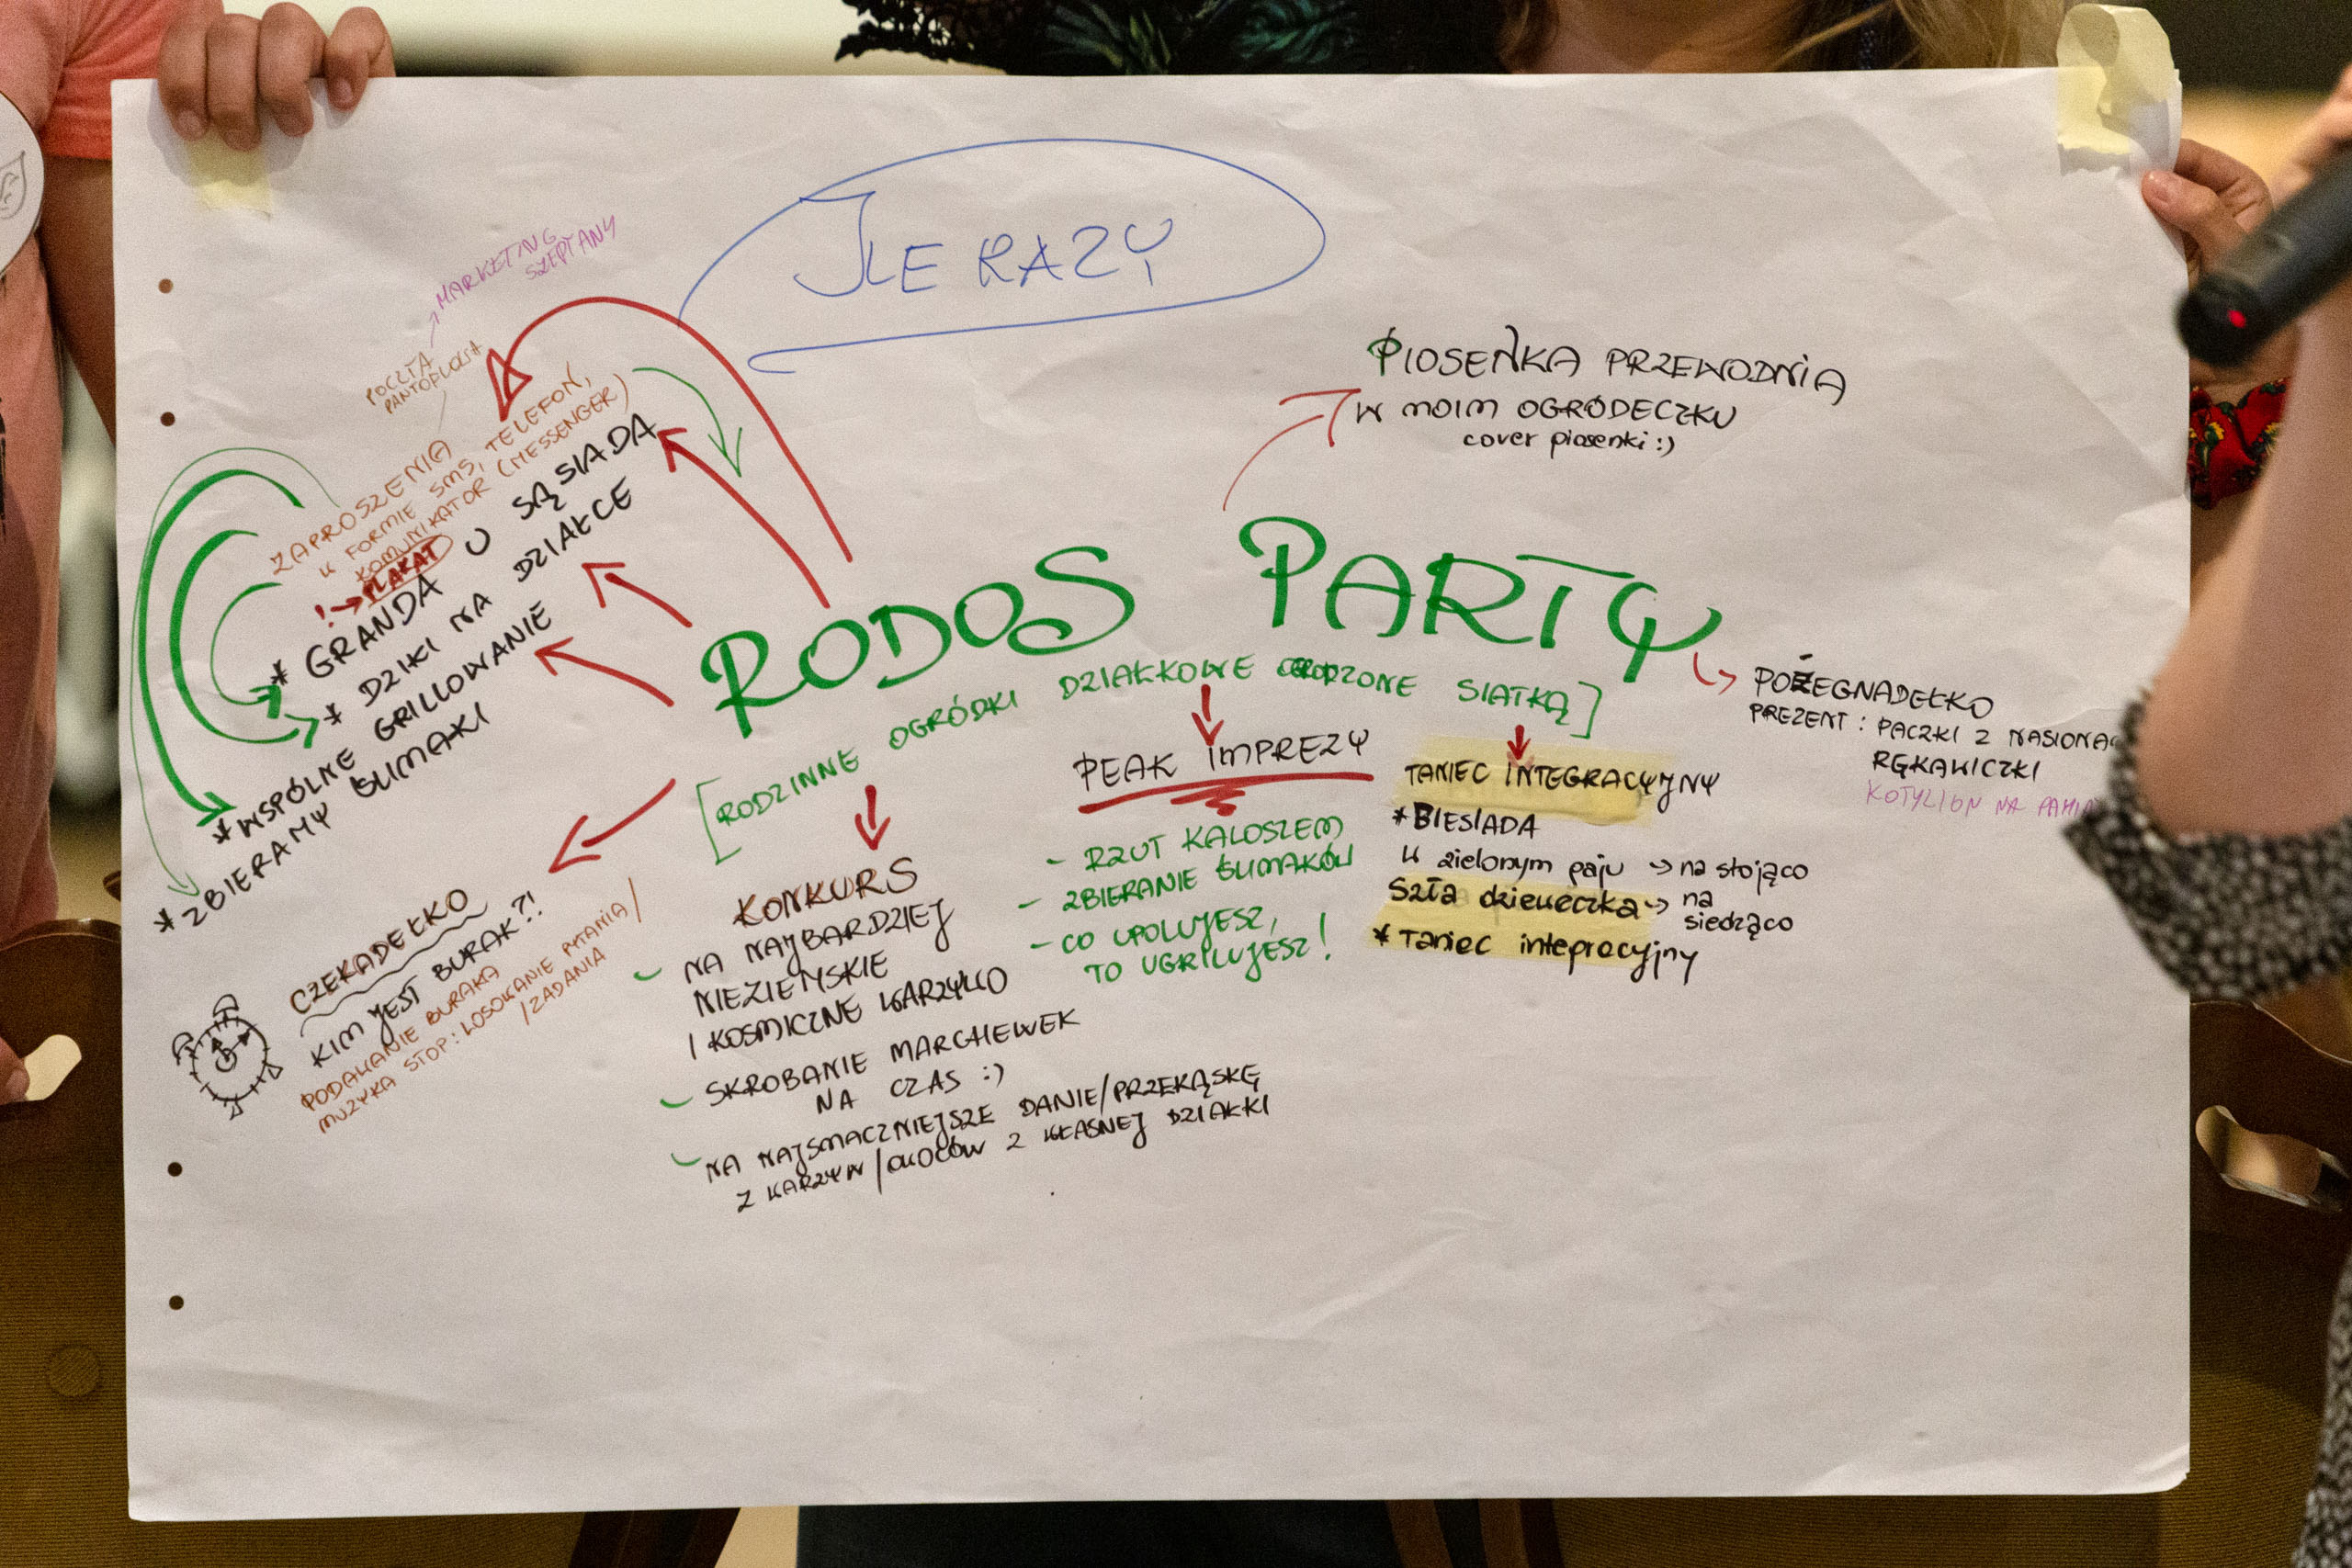 JLE RAZY
MARKETING
SZEPTANY
POCZTA
PANTOFLOWA
ZAPROSZENIA
W FORMIE SMS, TELEFON,
KOMUNIKATOR (MESSENGER)
! → PLAKAT
* GRANDA U SĄSIADA
* DZIKI NA DZIAŁCE
* WSPÓLNE GRILLOWANIE
* ZBIERAMY ŚLIMAKI
PIOSEŃKA PRZEWODNIA
W MOIM OGRÓDECZKU
cover piosenki :)
RODOS PARTY
[RODZINNE OGRÓDKI DZIAŁKOWE OGRODZONE SIATKĄ]
CZEKADEŁKO
KIM JEST BURAK?!
PODAWANIE BURAKA
MUZYKA STOP: LOSOWANIE PYTANIA/
/ZADANIA
KONKURS
NA NAJBARDZIEJ
NIEZIEMSKIE
I KOSMICZNE WARZYWO
SKROBANIE MARCHEWEK
NA CZAS :)
NA NAJSMACZNIEJSZE DANIE/PRZEKĄSKĘ
Z WARZYW/OWOCÓW Z WŁASNEJ DZIAŁKI
PEAK IMPREZY
- RZUT KALOSZEM
- ZBIERANIE ŚLIMAKÓW
- CO UPOLUJESZ,
TO UGRILUJESZ!
TANIEC INTEGRACYJNY
* BIESIADA
W zielonym gaju → na stojąco
Szła dzieweczka → na
siedząco
* Taniec integracyjny
POŻEGNADEŁKO
PREZENT: PACZKI Z
RĘKAWICZKI
KOTYLION NA